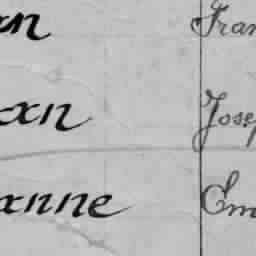 an Fran
ean Josep
anne Em